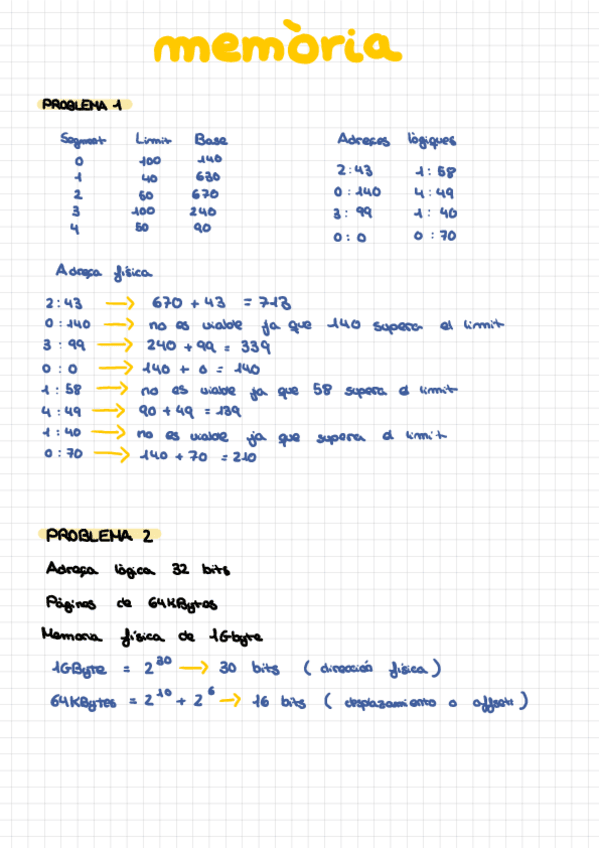 memòria
PROBLEMA 1
Segment Limit Base
0 100 140
1 40 630
2 50 670
3 100 240
4 50 90
Adreces lògiques
2:43 1:58
0:140 4:49
3:99 1:40
0:0 0:70
Adreça física
2:43 → 670 + 43 = 713
0:140 → no es viable ja que 140 supera el limit
3:99 → 240 + 99 = 339
0:0 → 140 + 0 = 140
1:58 → no es viable ja que 58 supera el limit
4:49 → 90 + 49 = 139
1:40 → no es viable ja que supera el limit
0:70 → 140 + 70 = 210
PROBLEMA 2
Adreça lògica 32 bits
Pàgines de 64KBytes
Memoria física de 1Gbyte
1GByte = 2^30 → 30 bits (dirección física)
64KBytes = 2^10 + 2^6 → 16 bits (desplazamiento o offset)